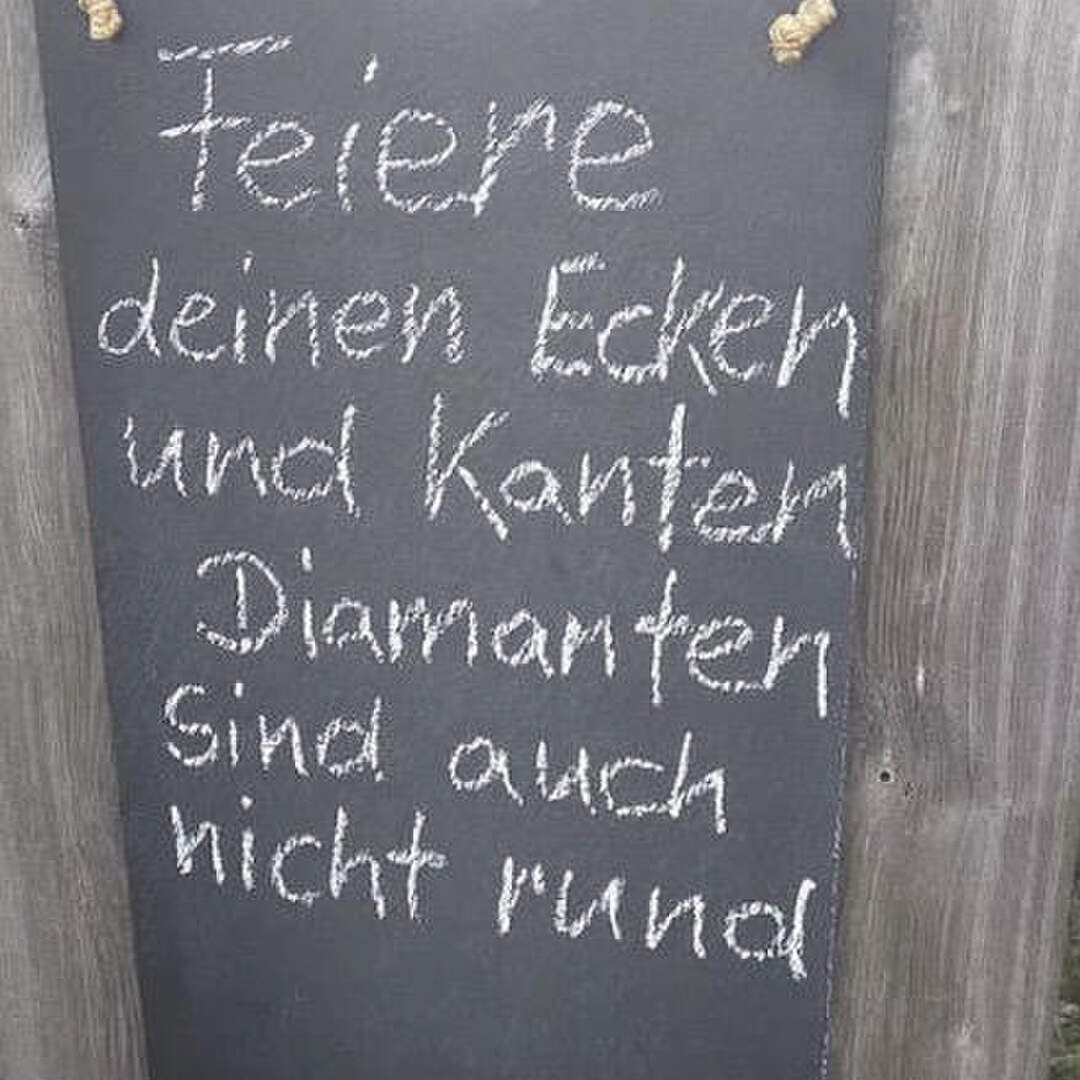 Feiere
deinen Ecken
und Kanten
Diamanten
sind auch
nicht rund